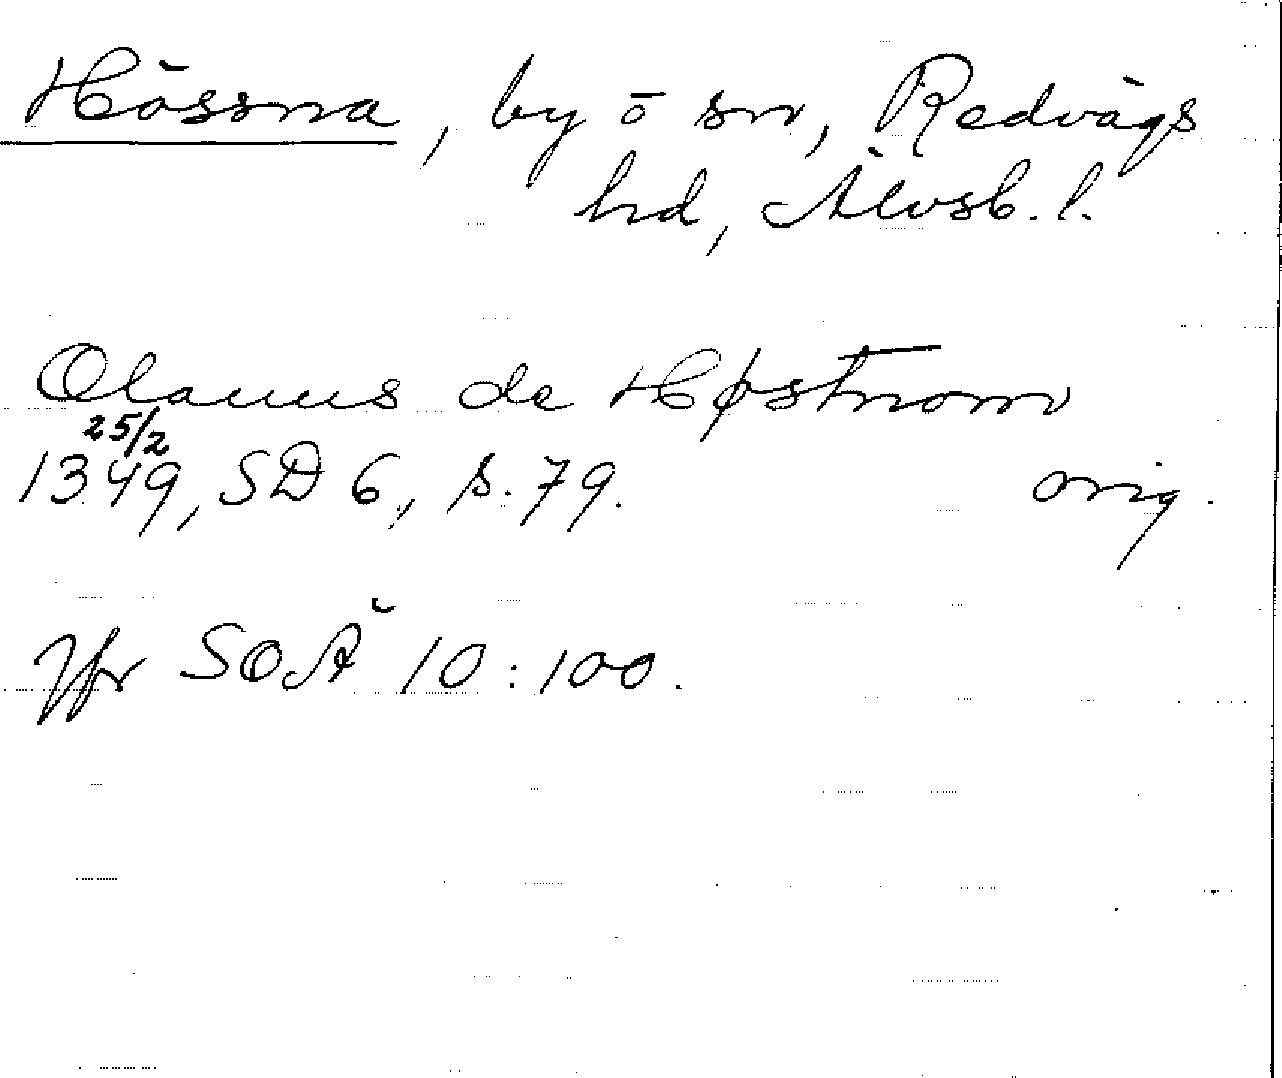 Hössna, by o sn, Redvägs
hd, Älvsb. l.
Olauus de Høstnom
25/2
1349, SD 6, s. 79. orig.
Jfr SOÄ 10:100.